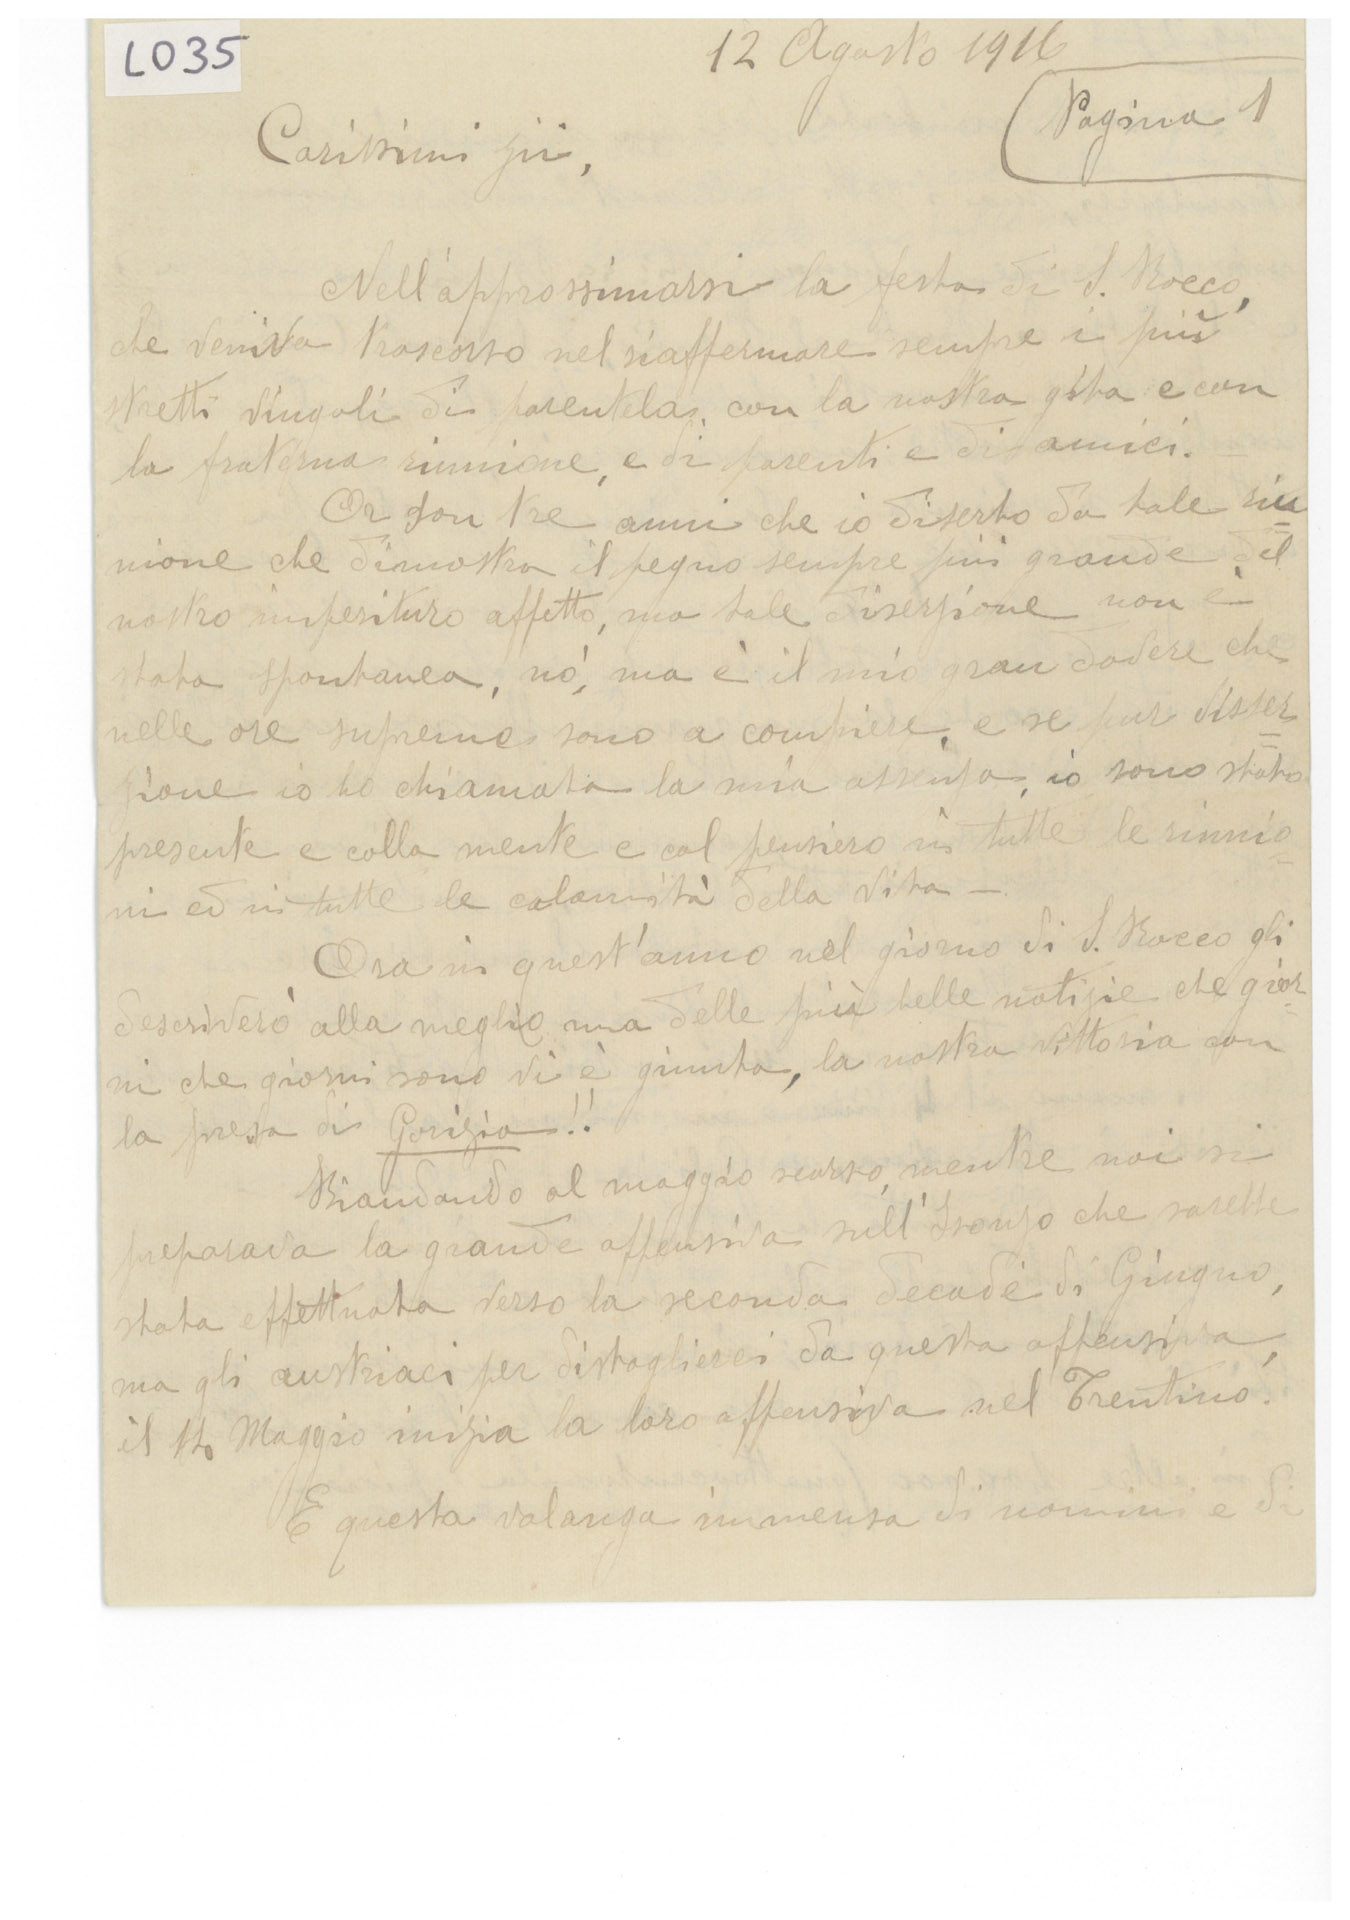 LO35
12 Agosto 1916
Pagina 1
Carissimi zii,
Nell'approssimarsi la festa di S. Rocco,
che veniva trascorso nel riaffermare sempre i più
stretti vingoli di parentela, con la nostra gita e con
la fraterna riunione, e di parenti e di amici. –
Or son tre anni che io diserto da tale riu=
nione che dimostra il pegno sempre più grande del
nostro imperituro affetto, ma tale diserzione non è
stata spontanea, nò, ma è il mio gran dovere che
nelle ore supreme sono a compiere, e se pur disser=
zione io ho chiamata la mia assenza, io sono stato
presente e colla mente e col pensiero in tutte le riunio=
ni ed in tutte le calamità della vita –
Ora in quest'anno nel giorno di S. Rocco gli
descriverò alla meglio una delle più belle notizie che gior=
ni che giorni sono vi è giunta, la nostra vittoria con
la presa di Gorizia!!
Riandando al maggio scorso, mentre noi si
preparava la grande offensiva sull'Isonzo che sarette
stata effettuata verso la seconda decade di Giugno,
ma gli austriaci per distoglierci da questa offensiva,
il 14 Maggio inizia la loro offensiva nel Trentino.
E questa valanga immensa di uomini e di